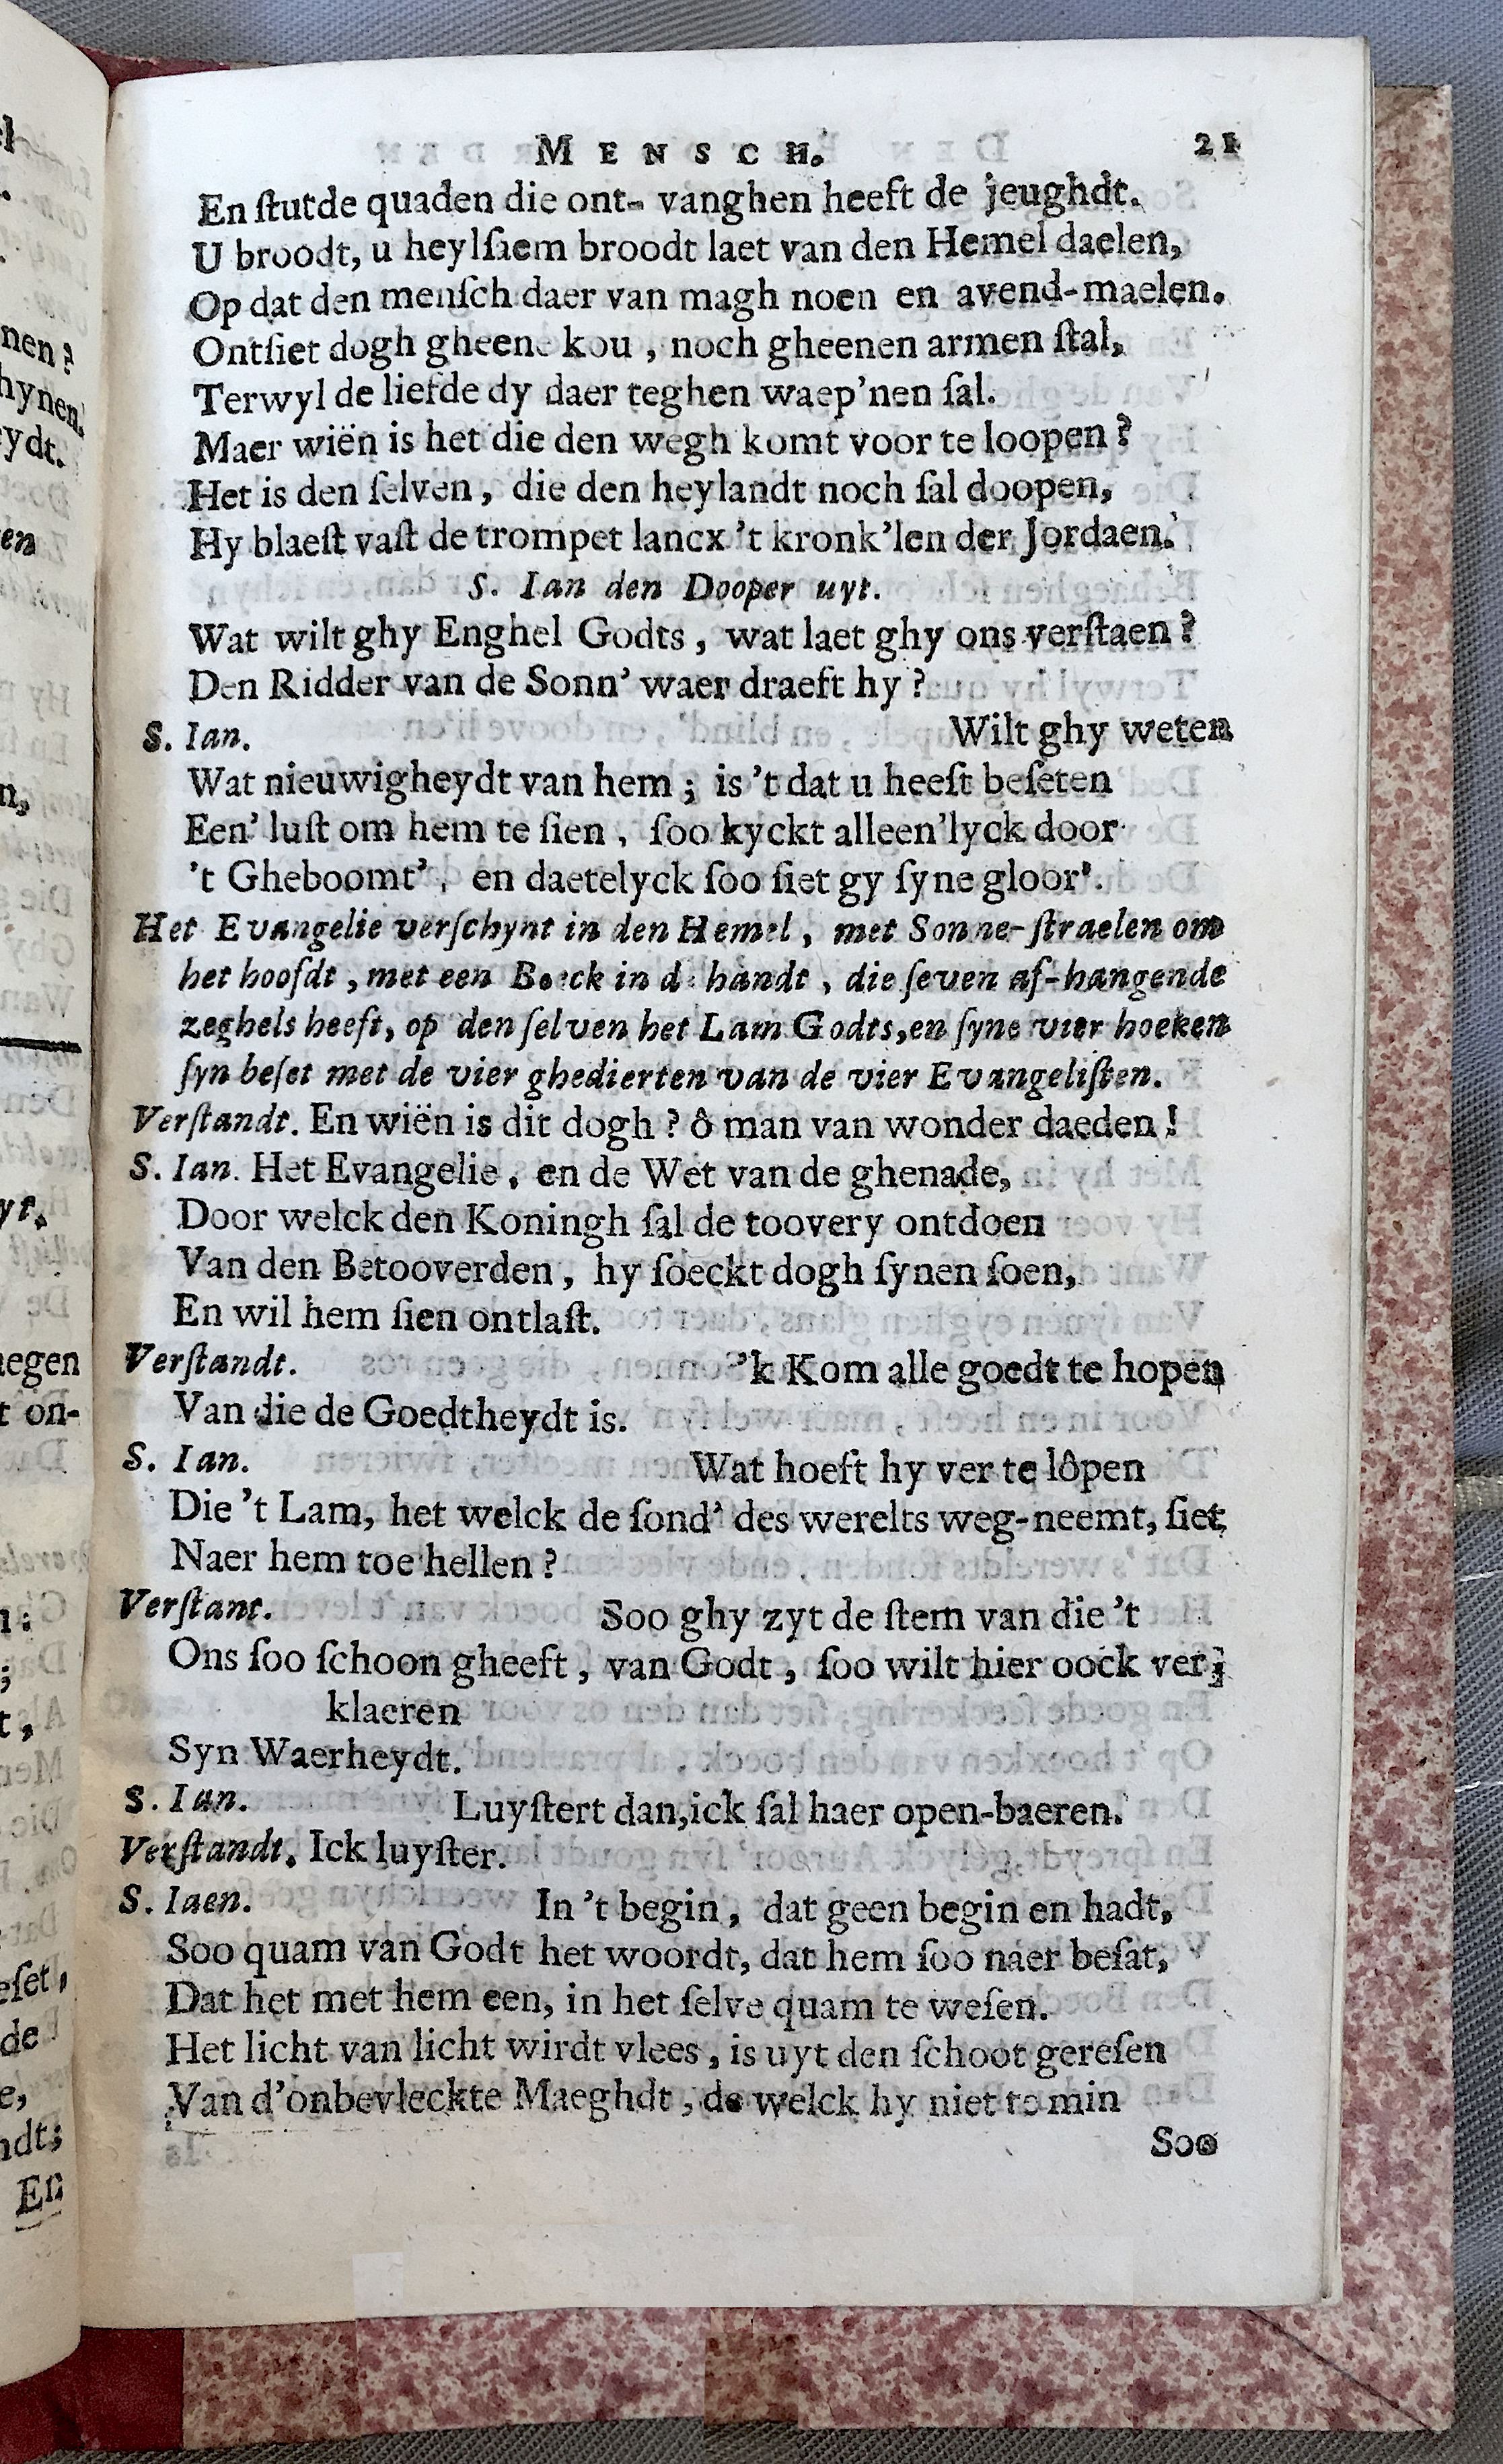 MENSCH. 21
En ſtutde quaden die ont- vanghen heeft de jeughdt.
U broodt, u heylſaem broodt laet van den Hemel daelen,
Op dat den menſch daer van magh noen en avend-maelen.
Ontſiet dogh gheene kou, noch gheenen armen ſtal,
Terwyl de liefde dy daer teghen waep'nen ſal.
Maer wiën is het die den wegh komt voor te loopen?
Het is den ſelven, die den heylandt noch ſal doopen,
Hy blaeſt vaſt de trompet lancx 't kronk'len der Jordaen.
S. Ian den Dooper uyt.
Wat wilt ghy Enghel Godts, wat laet ghy ons verſtaen?
Den Ridder van de Sonn' waer draeft hy?
S. Ian. Wilt ghy weten
Wat nieuwigheydt van hem; is 't dat u heeft beſeten
Een' luſt om hem te ſien, ſoo kyckt alleen'lyck door
't Gheboomt', en daetelyck ſoo ſiet gy ſyne gloor'.
Het Evangelie verſchynt in den Hemel, met Sonne-ſtraelen om
het hoofdt, met een Boeck in de handt, die ſeven af-hangende
zeghels heeft, op den ſelven het Lam Godts, en ſyne vier hoeken
ſyn beſet met de vier ghedierten van de vier Evangeliſten.
Verſtandt. En wiën is dit dogh? ô man van wonder daeden!
S. Ian. Het Evangelie, en de Wet van de ghenade,
Door welck den Koningh ſal de toovery ontdoen
Van den Betooverden, hy ſoeckt dogh ſynen ſoen,
En wil hem ſien ontlaſt.
Verſtandt. 'k Kom alle goedt te hopen
Van die de Goedtheydt is.
S. Ian. Wat hoeft hy ver te lôpen
Die 't Lam, het welck de ſond' des werelts weg-neemt, ſiet
Naer hem toe hellen?
Verſtant. Soo ghy zyt de ſtem van die 't
Ons ſoo ſchoon gheeft, van Godt, ſoo wilt hier oock ver-
klaeren
Syn Waerheydt.
S. Ian. Luyſtert dan, ick ſal haer open-baeren.
Verſtandt. Ick luyſter.
S. Iaen. In 't begin, dat geen begin en hadt,
Soo quam van Godt het woordt, dat hem ſoo naer beſat,
Dat het met hem een, in het ſelve quam te weſen.
Het licht van licht wirdt vlees, is uyt den ſchoot gereſen
Van d'onbevleckte Maeghdt, de welck hy niet te min
Soo